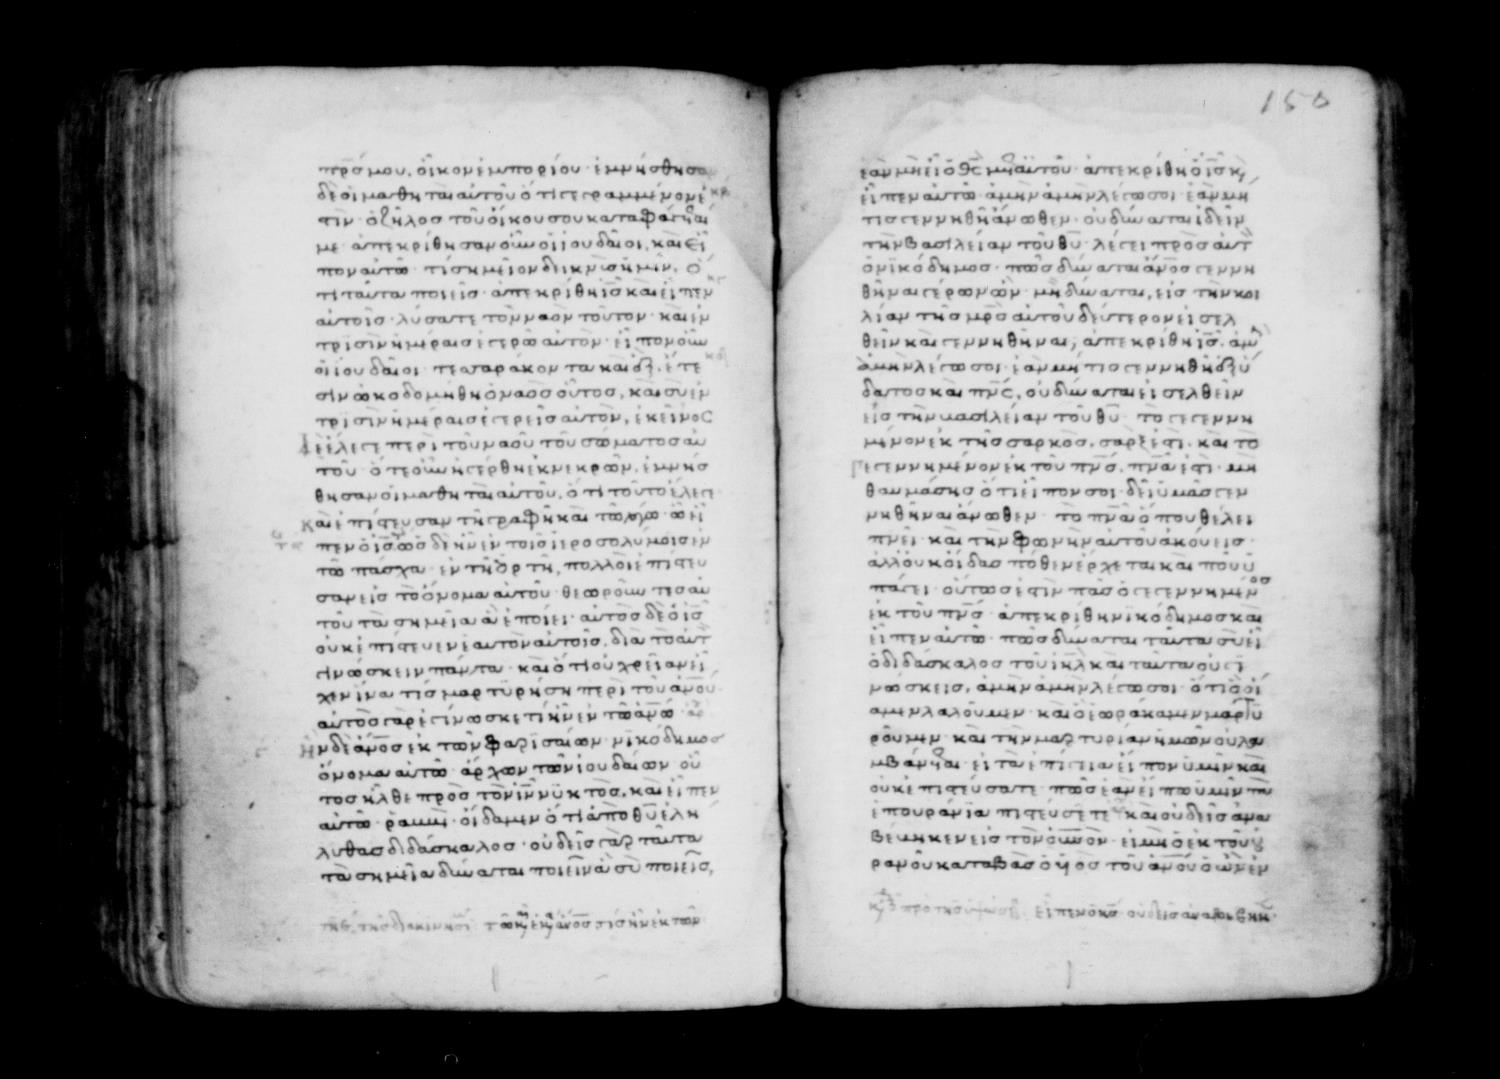 πρ̅σ μου, οἶκον ἐμπορίου· ἐμνήσθησαν
δὲ οἱ μαθηταὶ αὐτοῦ ὅτι γεγραμμένον ἐ
στὶν ὁ ζῆλος τοῦ οἴκου σου καταφάγεται
με· ἀπεκρίθησαν οὖν οἱ ἰουδαῖοι, καὶ εἶ
πον αὐτῶ· τί σημεῖον δεικνύεις ἡμῖν, ὅ
τι ταῦτα ποιεῖς· ἀπεκρίθη ἰ̅ς καὶ εἶπεν
αὐτοῖς· λύσατε τὸν ναὸν τοῦτον· καὶ ἐν
τρισὶν ἡμέραις ἐγερῶ αὐτόν· εἶπον οὖν
οἱ ἰουδαῖοι· τεσσαράκοντα καὶ ἓξ ἔτε
σιν ὠκοδομήθη ὁ ναὸς οὗτος, καὶ σὺ ἐν
τρισὶν ἡμέραις ἐγερεῖς αὐτόν, ἐκεῖνος
δὲ ἔλεγε περὶ τοῦ ναοῦ τοῦ σώματος αὐ
τοῦ· ὅτε οὖν ἠγέρθη ἐκ νεκρῶν, ἐμνήσ
θησαν οἱ μαθηταὶ αὐτοῦ, ὅτι τοῦτο ἔλεγε
καὶ ἐπίστευσαν τῆ γραφῆ καὶ τῶ λόγω ὧ εἶ
πεν ὁ ἰ̅ς ὡς δὲ ἦν ἐν τοῖς ἱεροσολύμοις ἐν
τῶ πάσχα· ἐν τῆ ἑορτῆ, πολλοὶ ἐπίστευ
σαν εἰς τὸ ὄνομα αὐτοῦ· θεωροῦντες αὐ
τοῦ τὰ σημεῖα ἃ ἐποίει· αὐτὸς δὲ ὁ ἰ̅ς
οὐκ ἐπίστευεν ἑαυτὸν αὐτοῖς, διὰ τὸ αὐτ
γινώσκειν πάντα· καὶ ὅτι οὐ χρείαν εἶ
χεν ἵνα τίς μαρτυρήση περὶ τοῦ ἀ̅νου·
αὐτὸς γὰρ ἐγίνωσκε τί ἦν ἐν τῶ ἀ̅νω
ἦν δὲ ἄ̅νος ἐκ τῶν φαρισαίων· νικόδημος
ὄνομα αὐτῶ· ἄρχων τῶν ἰουδαίων· οὗ
τος ἦλθε πρὸς τὸν ἰ̅ν νυκτός, καὶ εἶπεν
αὐτῶ· ῥαββί· οἴδαμεν ὅτι ἀπὸ θ̅υ ἐλή
λυθας διδάσκαλος· οὐδεὶς γὰρ ταῦτα
τὰ σημεῖα δύναται ποιεῖν ἃ σὺ ποιεῖς,
τῶ κ ἐκ ἄ̅νος τις ἦν ἐκ τῶν
150
ἐὰν μὴ εἶ ὁ θ̅ς μετ αὐτοῦ· ἀπεκρίθη ὁ ἰ̅ς κ,
εἶπεν αὐτῶ· ἀμὴν ἀμὴν λέγω σοι· ἐὰν μή
τις γεννηθῆ ἄνωθεν· οὐ δύναται ἰδεῖν
τὴν βασιλείαν τοῦ θ̅υ· λέγει πρὸς αὐτ
ὁ νικόδημος· πῶς δύναται ἄ̅νος γεννη
θῆναι γέρων ὤν· μὴ δύναται, εἰς τὴν κοι
λίαν τῆς μ̅ρς αὐτοῦ δεύτερον εἰσελ
θεῖν καὶ γεννηθῆναι; ἀπεκρίθη ἰ̅ς· ἀμ
ἀμὴν λέγω σοι· ἐὰν μή τις γεννηθῆ ἐξ ὕ
δατος καὶ π̅νς, οὐ δύναται εἰσελθεῖν
εἰς τὴν βασιλείαν τοῦ θ̅υ· τὸ γεγεννη
μένον ἐκ τῆς σαρκός, σάρξ ἐστι· καὶ τὸ
γεγεννημένον ἐκ τοῦ π̅νς, π̅να ἐστι· μὴ
θαυμάσης ὅτι εἶπον σοι· δεῖ ὑμᾶς γεν
νηθῆναι ἄνωθεν· τὸ π̅να ὅπου θέλει
πνεῖ· καὶ τὴν φωνὴν αὐτοῦ ἀκούεις·
ἀλλ οὐκ οἶδας πόθεν ἔρχεται καὶ ποῦ ὑ
πάγει· οὕτως ἐστὶν πᾶς ὁ γεγεννημένος
ἐκ τοῦ π̅νς· ἀπεκρίθη νικόδημος καὶ
εἶπεν αὐτῶ· πῶς δύναται ταῦτα· σὺ εἶ
ὁ διδάσκαλος τοῦ ἰ̅ηλ καὶ ταῦτα οὐ γι
νώσκεις, ἀμὴν ἀμὴν λέγω σοι· ὅτι ὃ οἴ
δαμεν λαλοῦμεν· καὶ ὃ ἑωράκαμεν μαρτυ
ροῦμεν· καὶ τὴν μαρτυρίαν ἡμῶν οὐ λα
μβάνεται· εἰ τὰ ἐπίγεια εἶπον ὑμῖν καὶ
οὐκ ἐπιστεύσατε· πῶς ἐὰν εἴπω ὑμῖν τὰ
ἐπουράνια πιστεύσετε· καὶ οὐδεὶς ἀνα
βέβηκεν εἰς τὸν οὐ̅νον· εἰ μὴ ὁ ἐκ τοῦ οὐ
ρανοῦ καταβὰς ὁ υ̅ος τοῦ ἀ̅νου ὁ ὢν ἐν
πρὸ τῆς ὑψώσ εἶπεν ὁ κ̅ς οὐδεὶς ἀναβέβηκεν